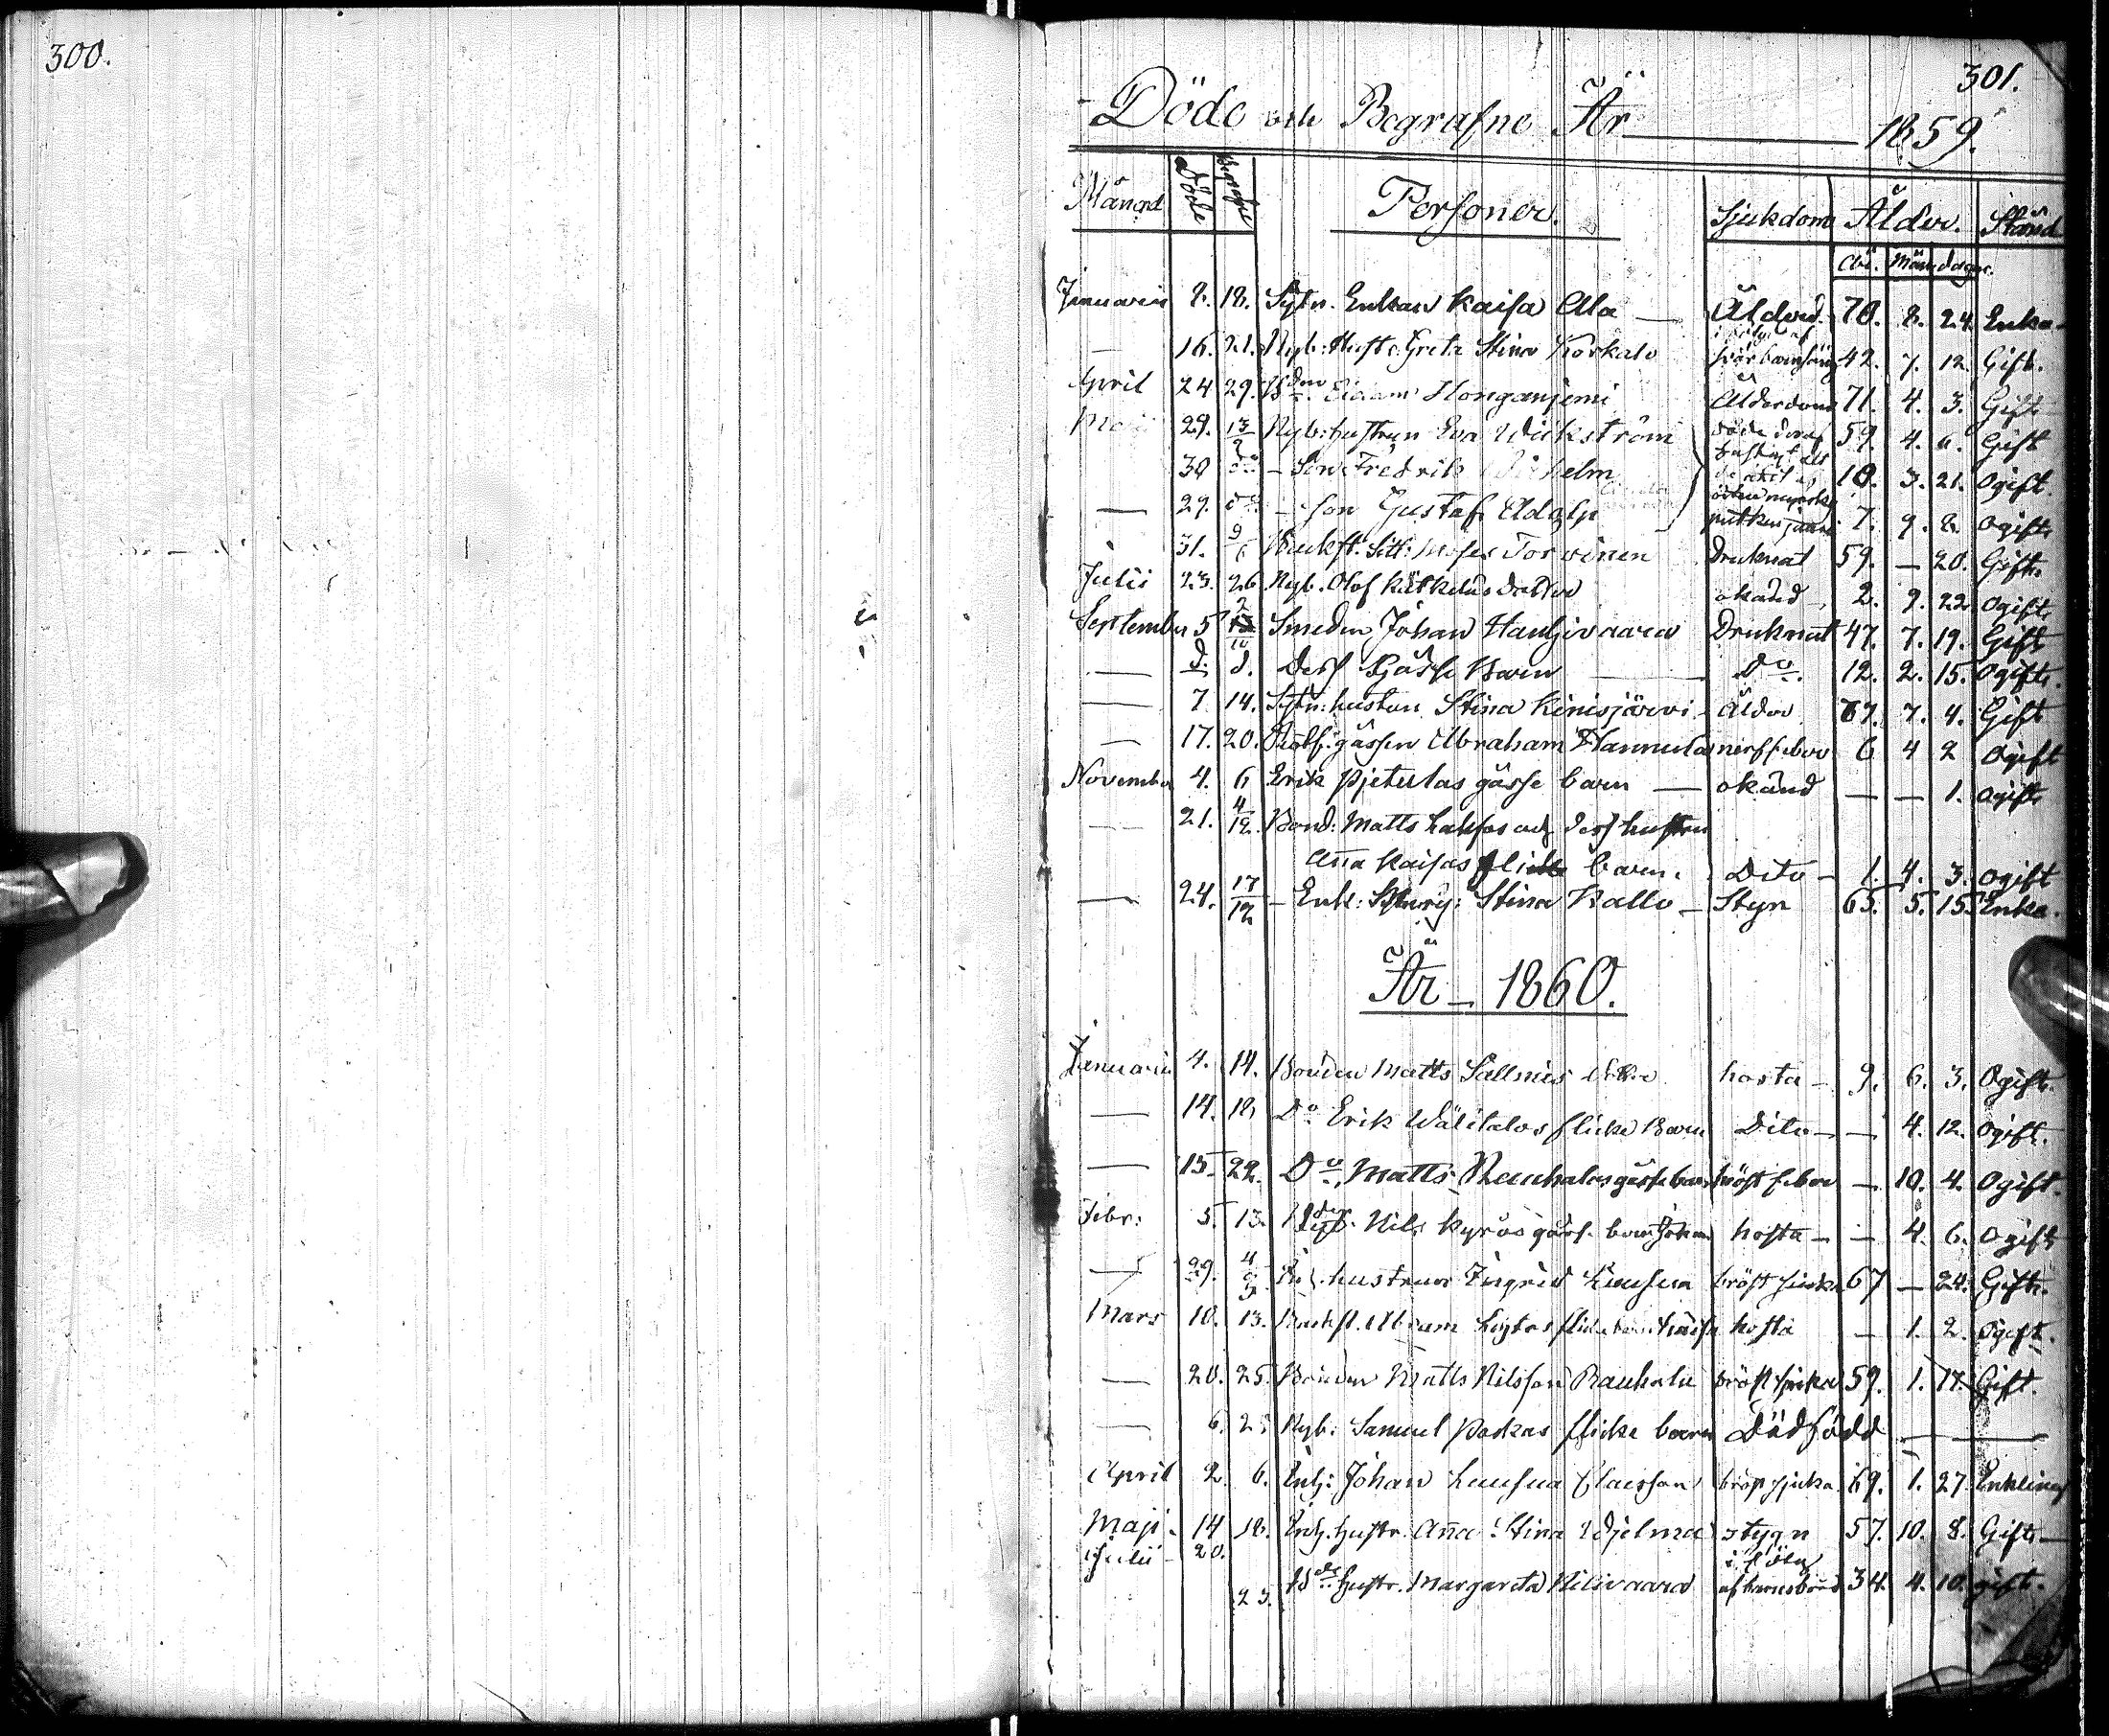 300.
301.
Döde och Begrafne År 1859.
Månad Döde Begrafne Personer. Sjukdom Ålder. Stånd
År. Mån dagar.
Januarii 8. 18. Sytn. Enkan Kaisa Ala — Ålderd. 78. 8. 24. Enka
— 16. 21. Nyb: Hustr. Greta Stina Korkalo i följd af svår barnsäng 42. 7. 12. Gift.
April 24 29. Bden Adam Honganjemi Ålderdom 71. 4. 3. Gift
Maj 29. 13/2 Nyb: hustrun Eva Wickström 59. 4. Gift
30 do — Son Fredrik Wilhelm 10. 3. 21. Ogift.
— 29. do — son Gustaf Adolp 7. 9. 8. ogift.
31. 9/6 Backst. Sitt: Moses Torvinen Druknat 59. — 20. Gift.
Julii 23. 26. Nyb. Olof Kätkelus dotter okänd — 2. 9. 22 Ogift.
September 5 Smeden Johan Hanhivaara Druknat 47. 7. 19. Gift
— d. d. Dess Gåsse Barn — Do. 12. 2. 15. Ogift.
— 7. 14. Sytn: hustun Stina Kinisjärvi Ålder 67. 7. 4. Gift
— 17. 20. gåssen Abraham Hannula nerffeber 6 4 2 Ogift
November 4. 6 Erik Pjetulas gåsse barn — okänd — — 1. Ogift.
— 21. 4/12 Bond: Matts Lahfas och dess hustru
Anna Kaisas flicke barn. Dito — 1. 4. 3. Ogift
— 24. 17/12 — Enk: Stina Kallo — Styn 65. 5. 15. Enka.
År — 1860.
Januarii 4. 14. Bonden Matts Sallnies hosta — 9. 6. 3. Ogift.
— 14. 18. Do Erik Wälitalos flicke Barn Dito — — 4. 12. Ogift.
— 15. 22. Do. Matts Rauhalas gåsse barn bröst feber — 10. 4. Ogift.
Febr: 5. 13. Nils Kyrös gåss. barn Johan hosta — — 4. 6. Ogift
— 29. 4/3 hustrun Ingrid Lausua bröst sjuka 67 — 24. Gift.
Mars 10. 13. Backst. Abram flicke barn Kaisa hosta — 1. 2. Ogift.
— 20. 25. Bonden Matts Nilsson Rauhala bröst sjuka 59. 1. 17. Gift.
— 6. 25 Nyb: Samuel Poikas flicke barn Dödfödd — —
April 2. 6. Inh: Johan Lausua Claesson bröst sjuka 69. 1. 27. Enkling
Maji. 14 18. Inh. Hustr. Anna Stina Wjelma stygn 57. 10. 8. Gift —
Julii — 20. 23. Bde Hustr. Margareta Nilivaara i följd af barnsbörd 34. 4. 10. gift.